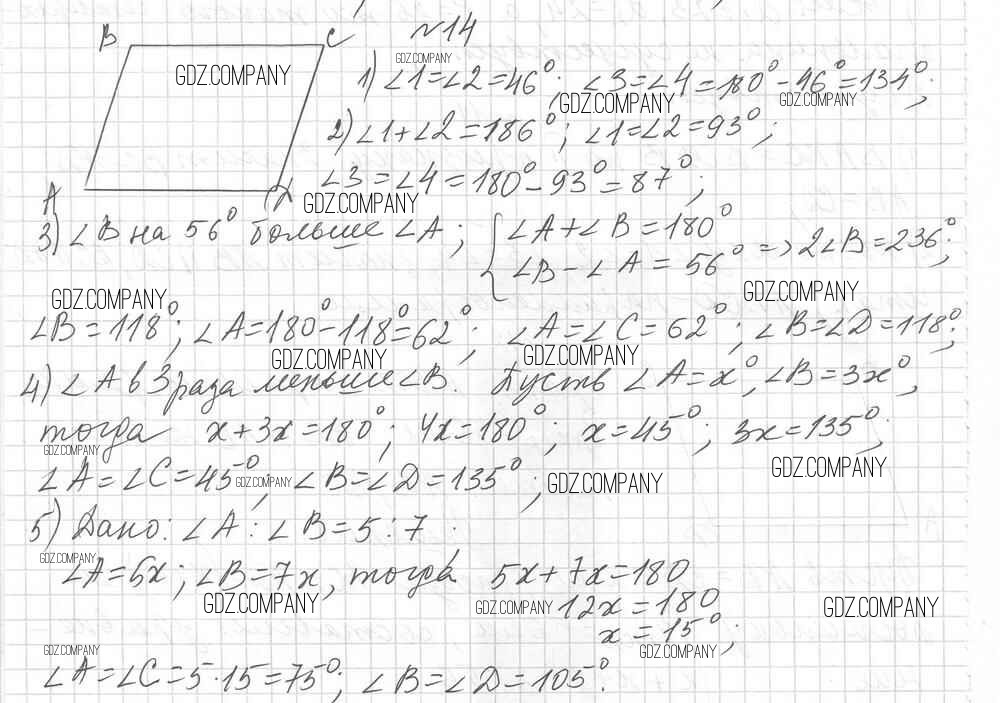 №14
B C
GDZ.COMPANY
GDZ.COMPANY
1) ∠1=∠2=46°; ∠3=∠4=180°-46°=134°;
GDZ.COMPANY GDZ.COMPANY
2) ∠1+∠2=186°; ∠1=∠2=93°;
∠3=∠4=180°-93°=87°;
A D
GDZ.COMPANY
3) ∠B на 56° больше ∠A; { ∠A+∠B=180°
∠B-∠A=56° => 2∠B=236°;
GDZ.COMPANY GDZ.COMPANY
∠B=118°; ∠A=180°-118°=62°; ∠A=∠C=62°; ∠B=∠D=118°;
GDZ.COMPANY GDZ.COMPANY
4) ∠A в 3 раза меньше ∠B. Пусть ∠A=x°, ∠B=3x°,
тогда x+3x=180°; 4x=180°; x=45°; 3x=135°;
GDZ.COMPANY GDZ.COMPANY
∠A=∠C=45°; ∠B=∠D=135°;
GDZ.COMPANY GDZ.COMPANY
5) Дано: ∠A:∠B=5:7;
GDZ.COMPANY
∠A=5x; ∠B=7x, тогда 5x+7x=180
GDZ.COMPANY GDZ.COMPANY 12x=180 GDZ.COMPANY
x=15°;
GDZ.COMPANY GDZ.COMPANY
∠A=∠C=5·15=75°; ∠B=∠D=105°.